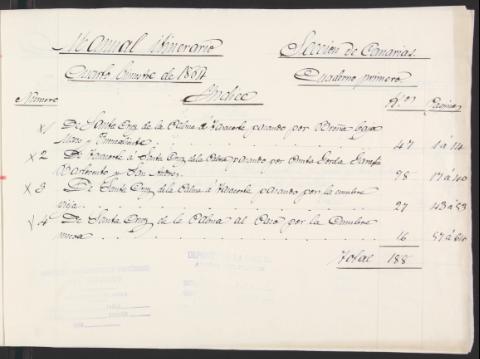 Manual itinerario Sección de Canarias.
Cuarto bimestre de 1897 Cuaderno primero
Indice
Número Kms Páginas
x 1 De Santa Cruz de la Palma á Tazacorte, pasando por Breña baja
Mazo y Fuencaliente 47 1 á 14
x 2 De Tazacorte á Santa Cruz de la Palma pasando por Punta Gorda, Garafía
Barlovento y San Andres 98 17 á 40
x 3 De Santa Cruz de la Palma á Tazacorte, pasando por la cumbre
vieja 27 43 á 53
x 4 De Santa Cruz de la Palma al Paso por la Cumbre
nueva 16 57 á
Total 188